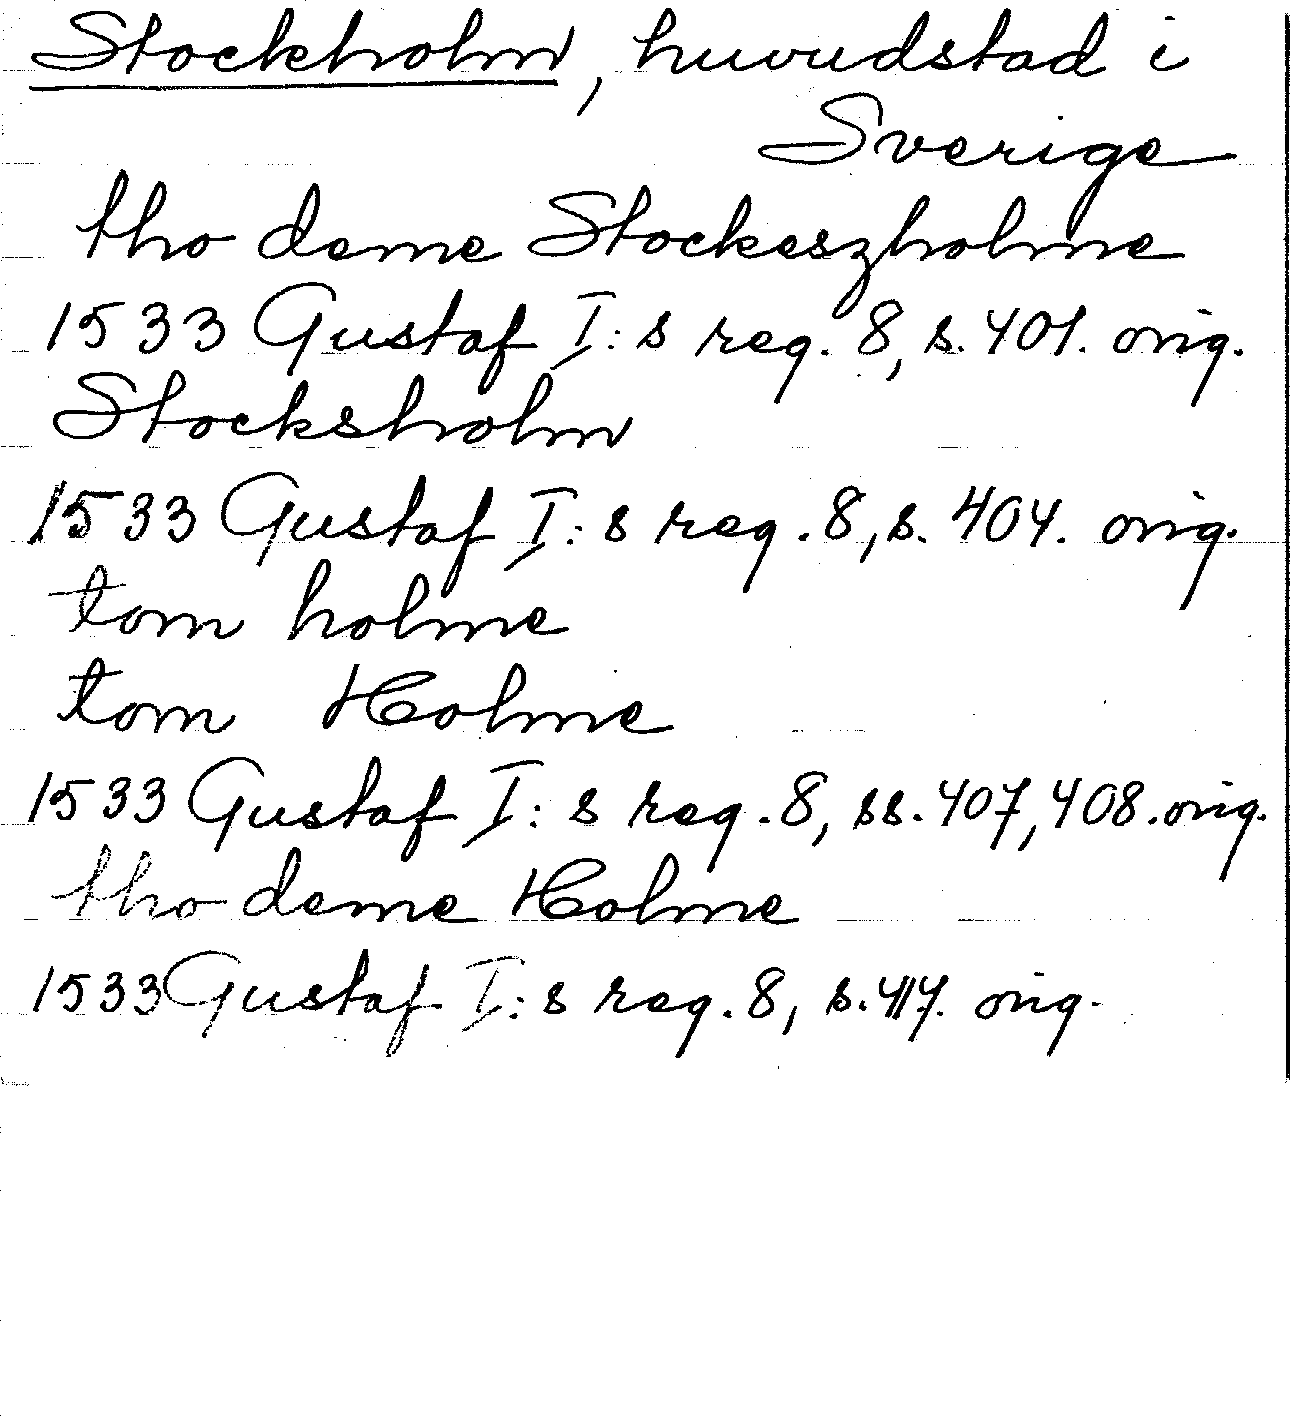 Stockholm, huvudstad i
Sverige
tho deme Stockeszholme
1533 Gustaf I:s reg. 8, s. 401. orig.
Stocksholm
1533 Gustaf I:s reg. 8, s. 404. orig.
tom holme
tom Holme
1533 Gustaf I:s reg. 8, ss. 407, 408. orig.
tho deme Holme
1533 Gustaf I:s reg. 8, s. 417. orig.